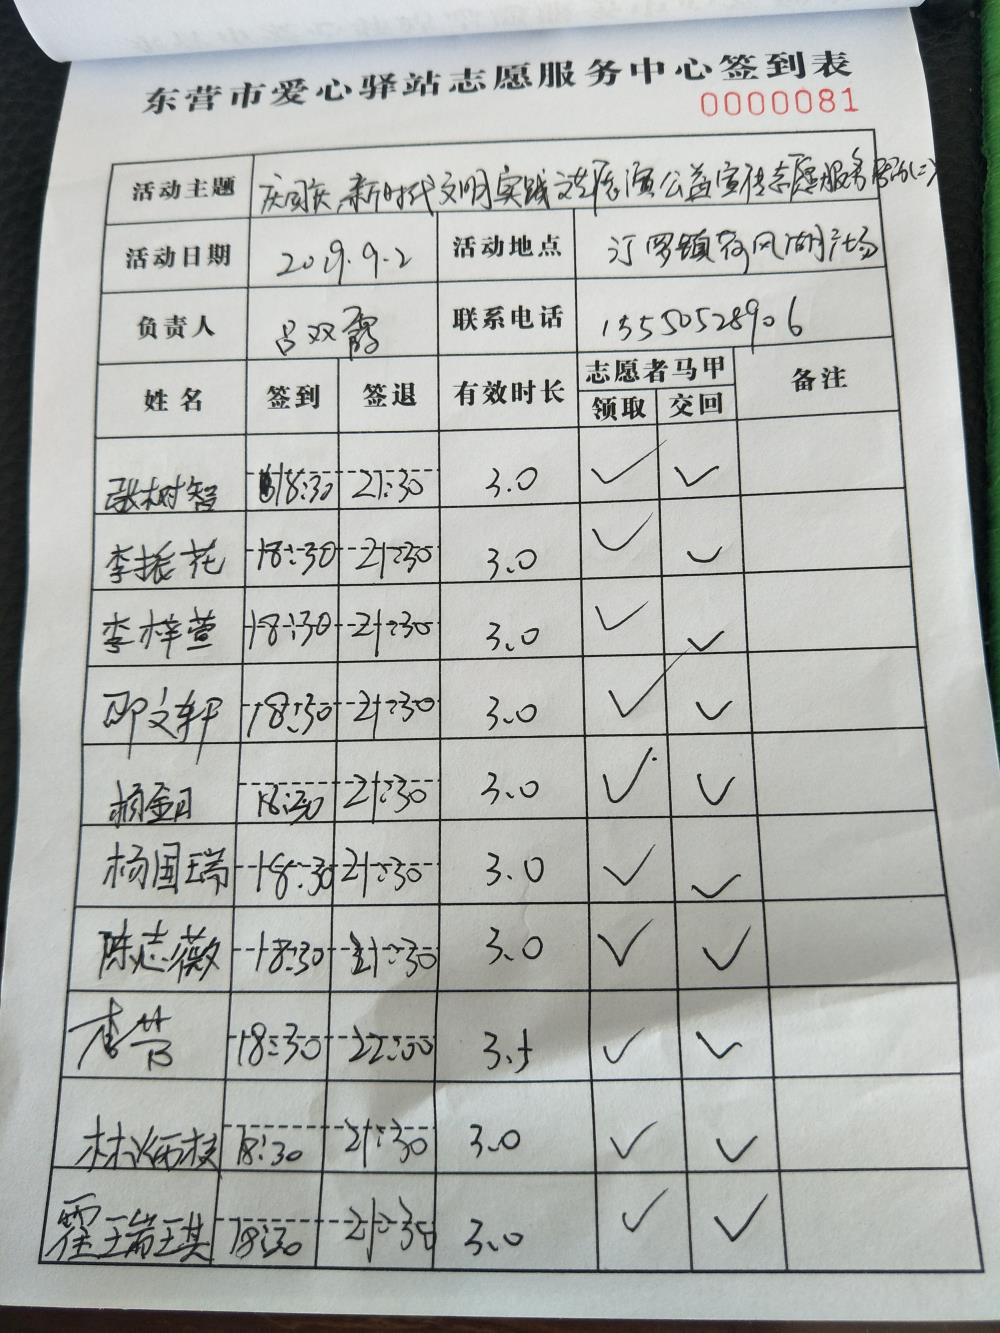 东营市爱心驿站志愿服务中心签到表
0000081
活动主题 庆国庆 新时代文明实践文艺展演公益宣传志愿服务活动(二)
活动日期 2019.9.2 活动地点 汀罗镇荷风湖广场
负责人 吕双霞 联系电话 15550528906
姓名 签到 签退 有效时长 志愿者马甲 备注
领取 交回
张树智 18:30 21:30 3.0 ✓ ✓
李振花 18:30 21:30 3.0 ✓ ✓
李梓萱 18:30 21:30 3.0 ✓ ✓
邵文轩 18:30 21:30 3.0 ✓ ✓
杨金日 18:30 21:30 3.0 ✓ ✓
杨国瑞 18:30 21:30 3.0 ✓ ✓
陈志薇 18:30 21:30 3.0 ✓ ✓
李营 18:30 22:00 3.5 ✓ ✓
林炳枝 18:30 21:30 3.0 ✓ ✓
霍瑞琪 18:30 21:30 3.0 ✓ ✓